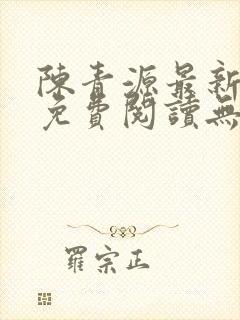 陳青源最新
免費閱讀無
羅宗正